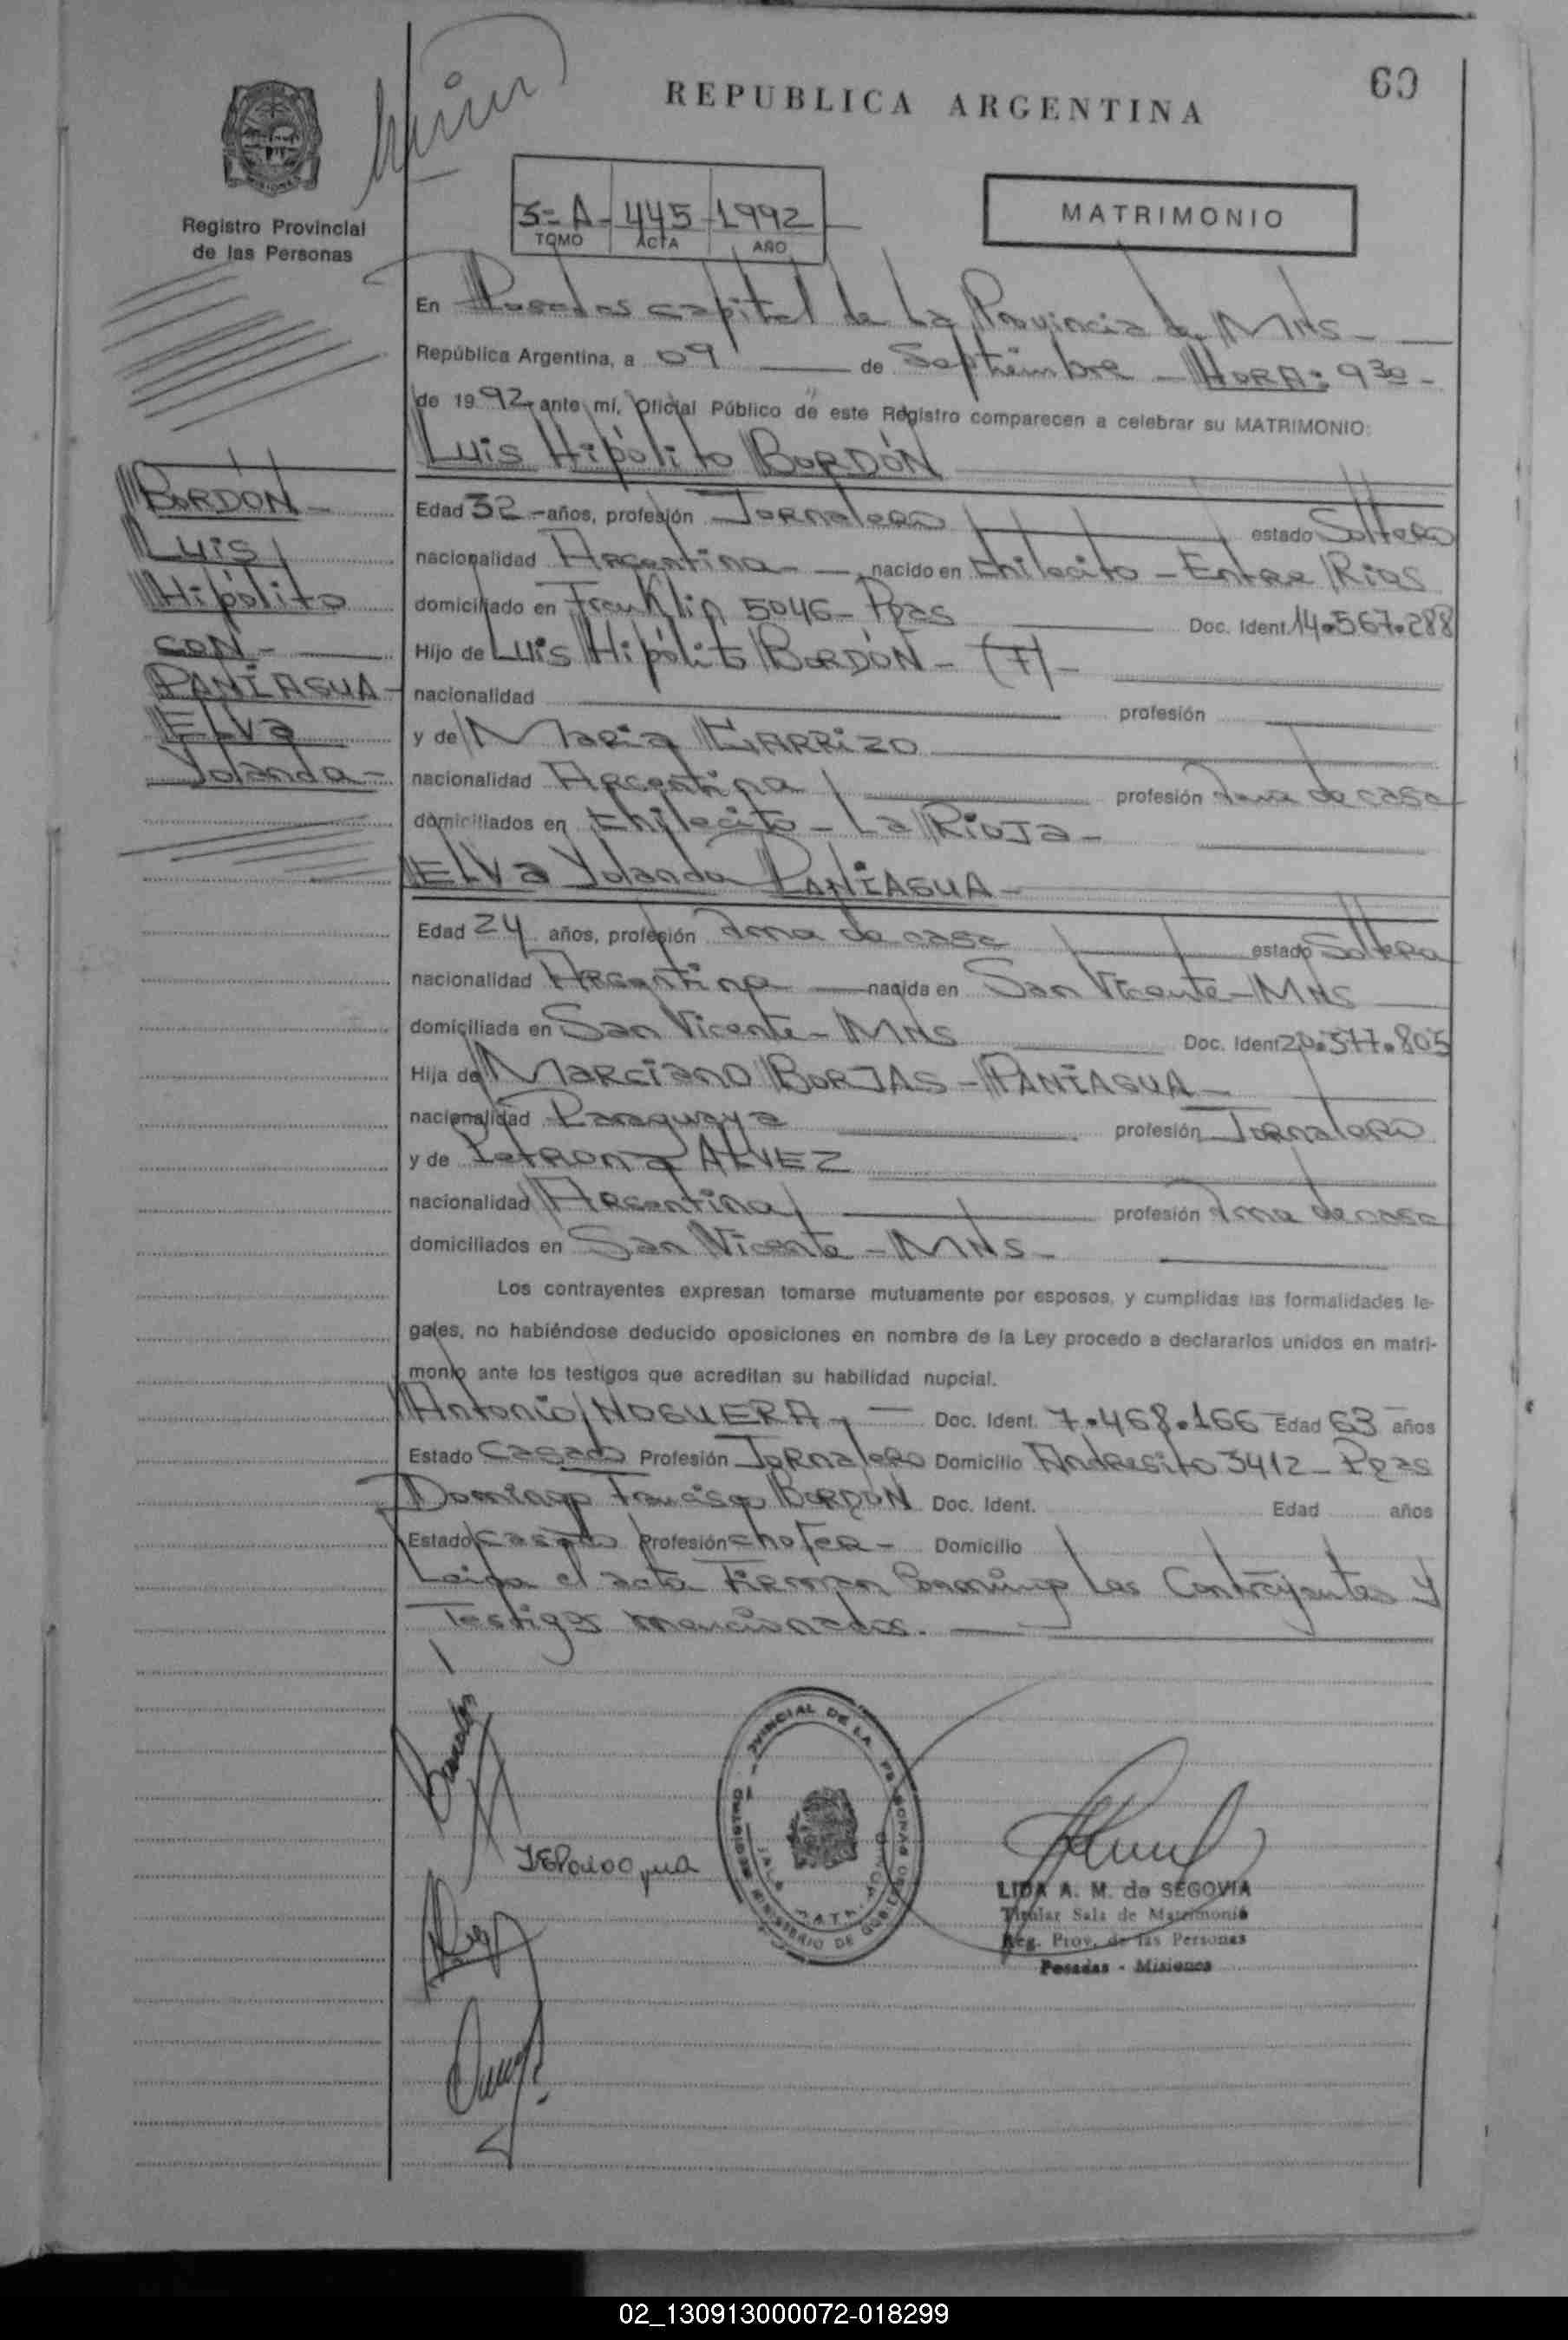 60
REPUBLICA ARGENTINA
MISIONES
Registro Provincial
de las Personas
3=A- 445-1992
TOMO ACTA AÑO
MATRIMONIO
En Posadas capital de La Provincia de MNS-
República Argentina, a 09 de Septiembre - HORA: 9 30-
de 1992 ante mí, Oficial Público de este Registro comparecen a celebrar su MATRIMONIO:
Luis Hipólito BORDÓN
BORDON-
Luis
Hipólito
CON-
PANIAGUA-
ELVa
Yolanda-
Edad 32-años, profesión Jornalero estado Soltero
nacionalidad Argentina- nacido en Chilecito - Entre Rios
domiciliado en Franklin 5046- Pdas Doc. Ident. 14.567.288
Hijo de Luis Hipólito BORDÓN- (F)-
nacionalidad profesión
y de Maria CARRIZO
nacionalidad Argentina profesión Ama de casa
domiciliados en Chilecito - La Rioja-
ELVa Yolanda PANIAGUA-
Edad 24 años, profesión Ama de casa estado Soltera
nacionalidad Argentina nacida en San Vicente-MNS
domiciliada en San Vicente-MNS Doc. Ident 20.577.805
Hija de MARCIANO BORJAS-PANIAGUA-
nacionalidad Paraguaya profesión Jornalero
y de Petrona ALVEZ
nacionalidad Argentina profesión Ama de casa
domiciliados en San Vicente-MNS-
Los contrayentes expresan tomarse mutuamente por esposos, y cumplidas las formalidades le-
gales, no habiéndose deducido oposiciones en nombre de la Ley procedo a declararlos unidos en matri-
monio ante los testigos que acreditan su habilidad nupcial.
Antonio NOGUERA- Doc. Ident. 7.468.166 Edad 63 años
Estado Casado Profesión Jornalero Domicilio Andresito 3412-Pdas
Domingo Francisco BORDÓN Doc. Ident. Edad años
Estado Casado Profesión chofer- Domicilio
Leida el acta Firman Conmigo Los Contrayentes y
Testigos mencionados.
LIDA A. M. de SEGOVIA
Titular Sala de Matrimonio
Reg. Prov. de las Personas
Posadas - Misiones
02_130913000072-018299